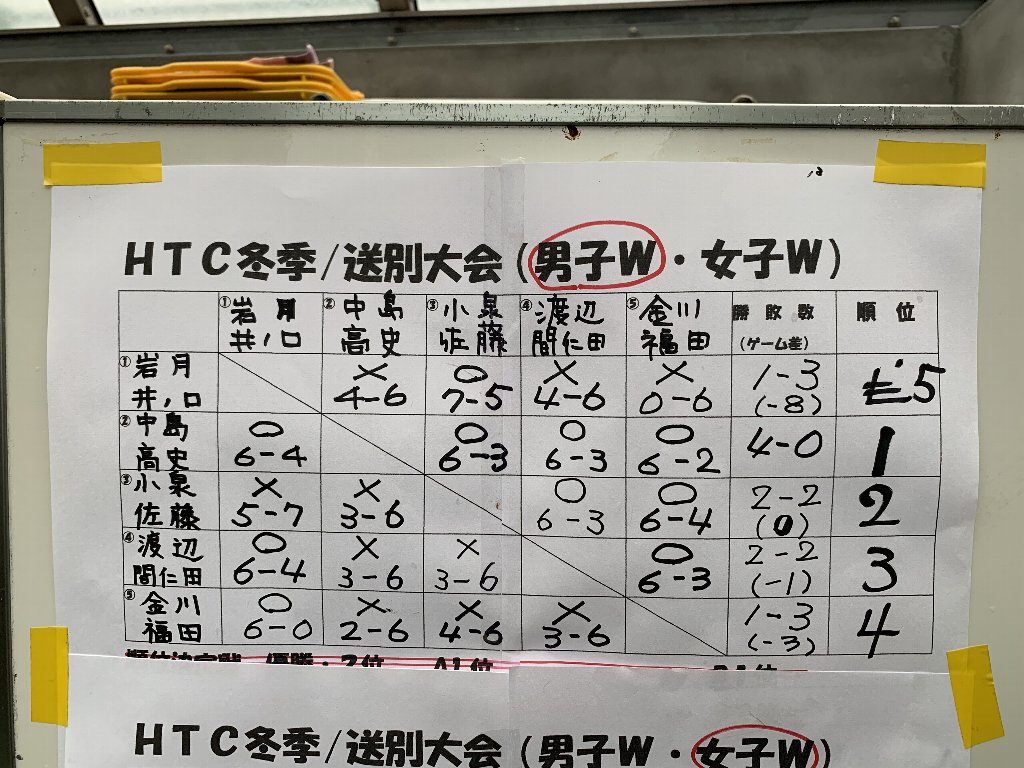 HTC冬季/送別大会(男子W・女子W)
①岩月 ②中島 ③小泉 ④渡辺 ⑤金川 勝敗数 順位
井ノ口 高史 佐藤 間仁田 福田 (ゲーム差)
①岩月 × ○ × × 1-3 5
井ノ口 4-6 7-5 4-6 0-6 (-8)
②中島 ○ ○ ○ ○ 4-0 1
高史 6-4 6-3 6-3 6-2
③小泉 × × ○ ○ 2-2 2
佐藤 5-7 3-6 6-3 6-4 (0)
④渡辺 ○ × × ○ 2-2 3
間仁田 6-4 3-6 3-6 6-3 (-1)
⑤金川 ○ × × × 1-3 4
福田 6-0 2-6 4-6 3-6 (-3)
HTC冬季/送別大会(男子W・女子W)